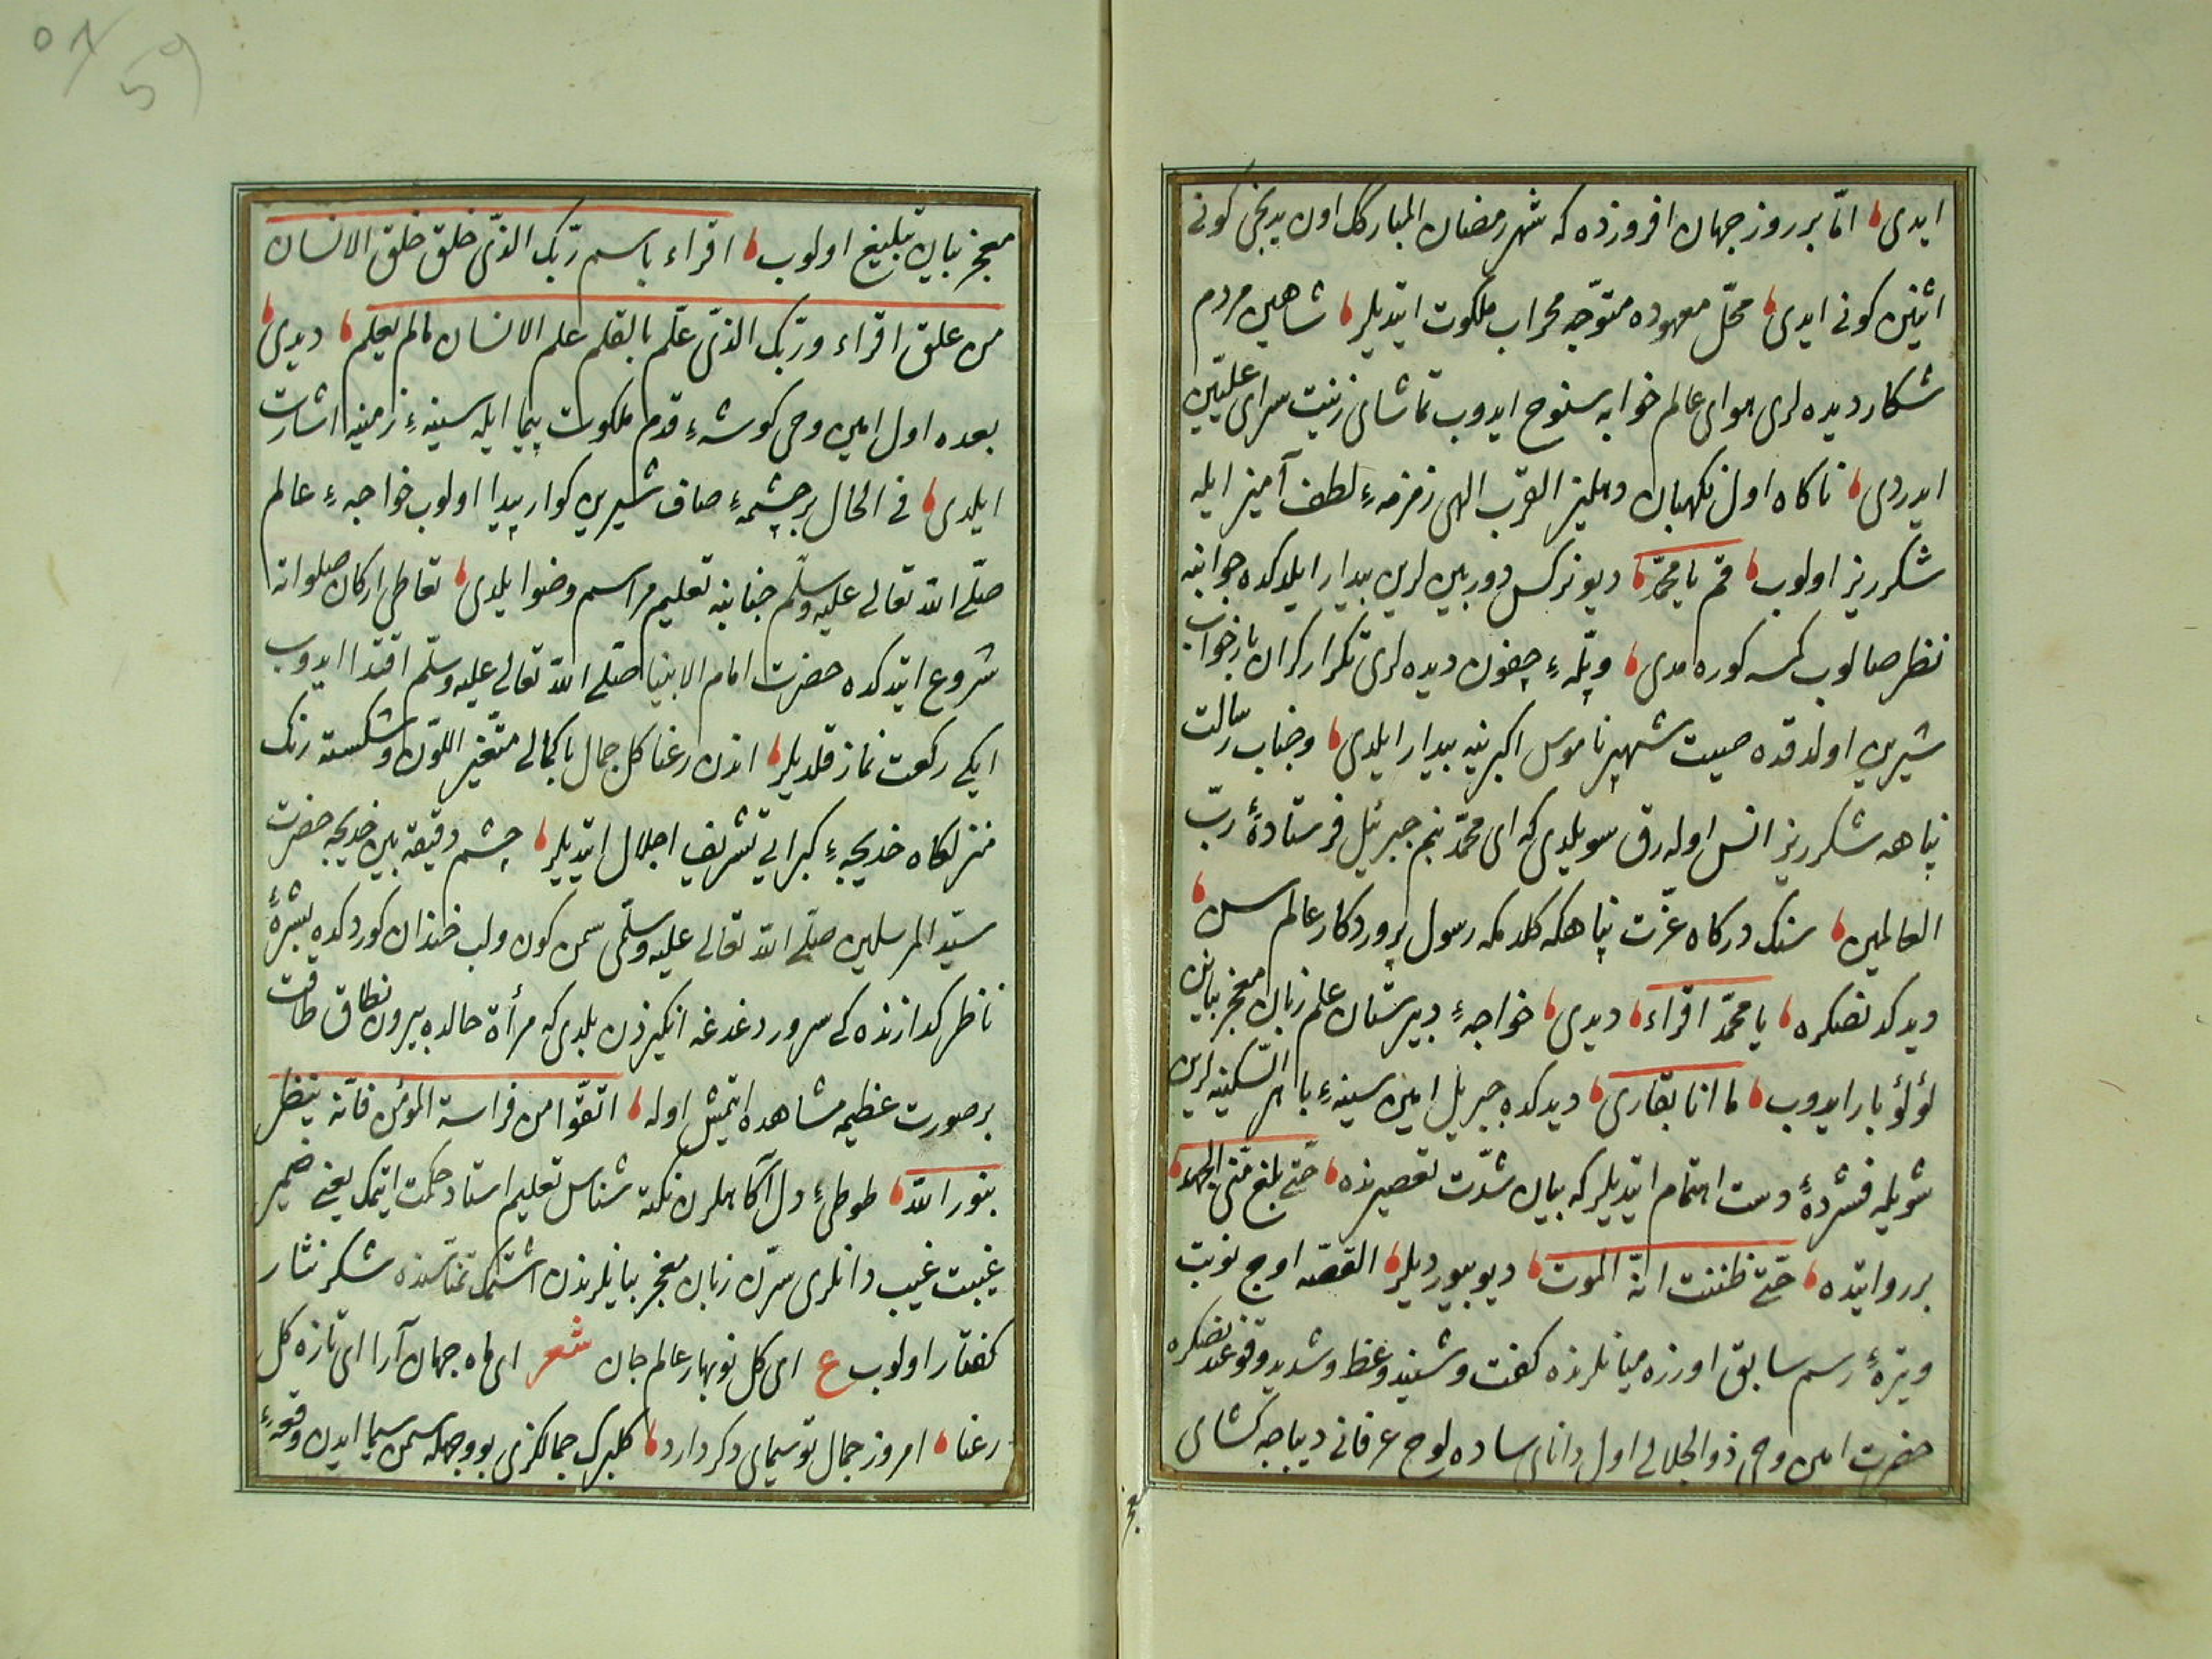 ايدى، امّا بر روز جهان افروزده كه شهر رمضان المبارك اون يدنجى كونى
اثنين كونى ايدى، محلّ معهوده متوّجه محراب ملكوت ايتديلر، شاهين مردم
شكار ديده لرى هواى عالم خوابه سنوح ايدوب تماشاى زينت سراى علّيين
ايدردى، ناكاه اول نكهبان دهليز القرب الهى زمزمهء لطف آميز ايله
شكرريز اولوب، قم يا محمّد، ديو نركس دوربين لرين بيدار ايلدكده جوانبنه
نظر صالوب كمسه كوره مدى، و پلّهء چفون ديده لرى تكرار كران بار خواب
شيرين اولدقده صيت شهپر ناموس اكبر ينه بيدار ايلدى، و جناب رسالت
پناهه شكرريز انس اوله رق سويلدى كه اى محمّد بنم جبرئيل فرستادهٔ ربّ
العالمين، سنك دركاه عزّت پناهكه كلدمكه رسول پروردكار عالم سن،
ديدكدنصكره، يا محمّد اقراء، ديدى، خواجهء دبيرستان علم زبان معجز بيانن
لؤلؤ بار ايدوب، ما انا بقارى، ديدكده جبريل امين سينهء باهر السّكينه لرين
شويله فشردهٔ دست اهتمام ايتديلر كه بيان شدّت تعصيرنده، حتّى بلغ منّى الجهد،
بر روايتده، حتّى ظننت انّه الموت، ديو بيورديلر، القصّه اوچ نوبت
وتيرهٔ رسم سابق اوزره ميانلرنده كفت و شنيد و غظ و شديد وقوعندنصكره
حضرت امين وحى ذوالجلالى اول داناى ساده لوح عرفانى ديباجه كشاى
معجز
معجز بيان تبليغ اولوب، اقراء باسم ربّك الذّى خلق خلق الانسان
من علق اقراء و ربّك الذّى علّم بالقلم علم الانسان مالم يعلم، ديدى،
بعده اول امين وحى كوشهء قدم ملكوت پيما ايله سينهء زمينه اشارت
ايلدى، فى الحال بر چشمهء صاف شيرين كوار پيدا اولوب خواجهء عالم
صلّى الله تعالى عليه وسلّم جنابنه تعليم مراسم وضوا يلدى، تعاطى اركان صلواته
شروع ايتدكده حضرت امام الانبيا صلّى الله تعالى عليه وسلّم اقتدا ايدوب
ايكى ركعت نماز قلديلر، اندن رعنا كل جمال با كمالى متّغير اللّون و شكسته رنك
منزلكاه خديجهء كبرايى تشريف اجلال ايتديلر، چشم دقيقه بين خديجه حضرت
سيّد المرسلين صلّى الله تعالى عليه وسلّمى سمن كون ولب خندان كوردكده بشرهٔ
ناظر كدازنده كى سرور دغدغه انكيزدن بلدى كه مرأة حالده بيرون نطاق طاقت
بر صورت عظيمه مشاهده ايتمش اوله، اتقّوا من فراسة المؤمن فانّه ينظر
بنور الله، طوطىء دل آكاهلرن نكته شناس تعليم استاد حكمت ايتمك يعنى ضمير
غيبت غيب دانلرى سرّن زبان معجز بيانلرندن اشتمك تمنّاسنده شكر نثار
كفتار اولوب ع اى كل نوبهار عالم جان شعر اى ماه جهان آرا اى تازه كل
رعنا، امروز جمال تو سيماى دكر دارد، كلبرك جمالكزى بو وجهله سمن سيما ايدن وقعهء